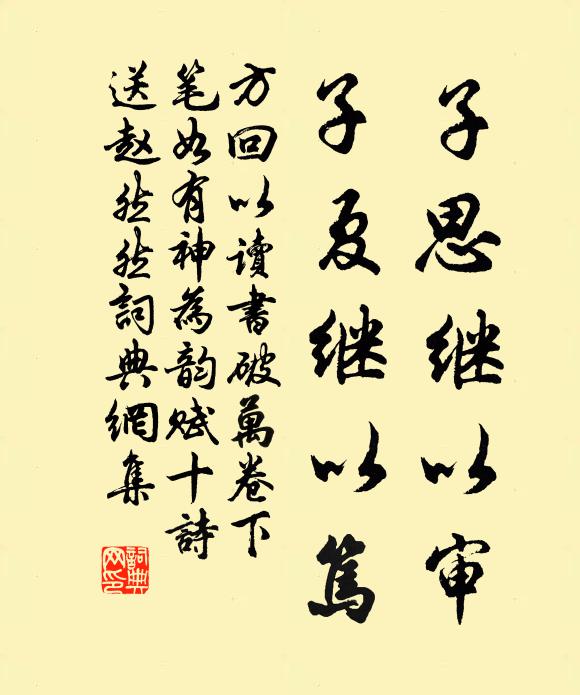 子思继以审
子夏继以篤
方回以讀書破萬卷下
笔如有神為韵赋十詩
送赵然然詞典網集
詞典网印